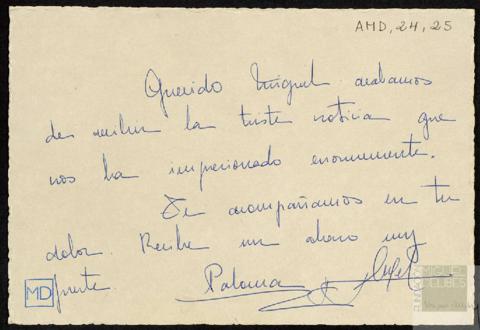 AMD, 24, 25
Querido Miguel acabamos
de recibir la triste noticia que
nos ha impresionado enormemente.
Te acompañamos en tu
dolor. Recibe un abrazo muy
fuerte.
Paloma
MD
FUNDACIÓN
MIGUEL
DELIBES